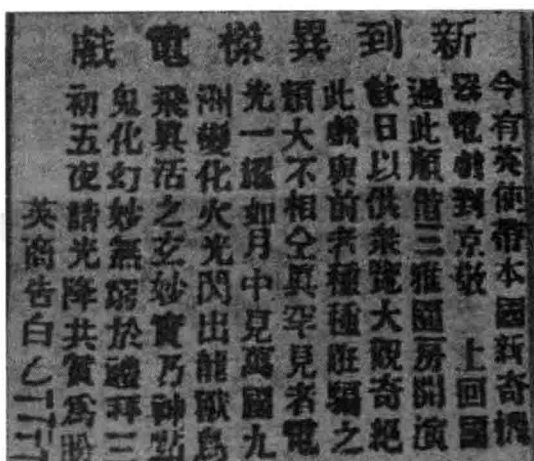 新到異樣電戲
今有英使帶本國新奇機
器電戲到京敬 上回國
過此順借三雅園房開演
數日以供眾覽大觀奇絕
此戲與前者種種誑騙之
類大不相仝真罕見者電
光一耀如月中見萬國九
洲變化火光閃出龍獸鳥
飛真活之玄妙實乃神點
鬼化幻妙無窮於禮拜三
初五夜請光降共賞為盼
英商告白